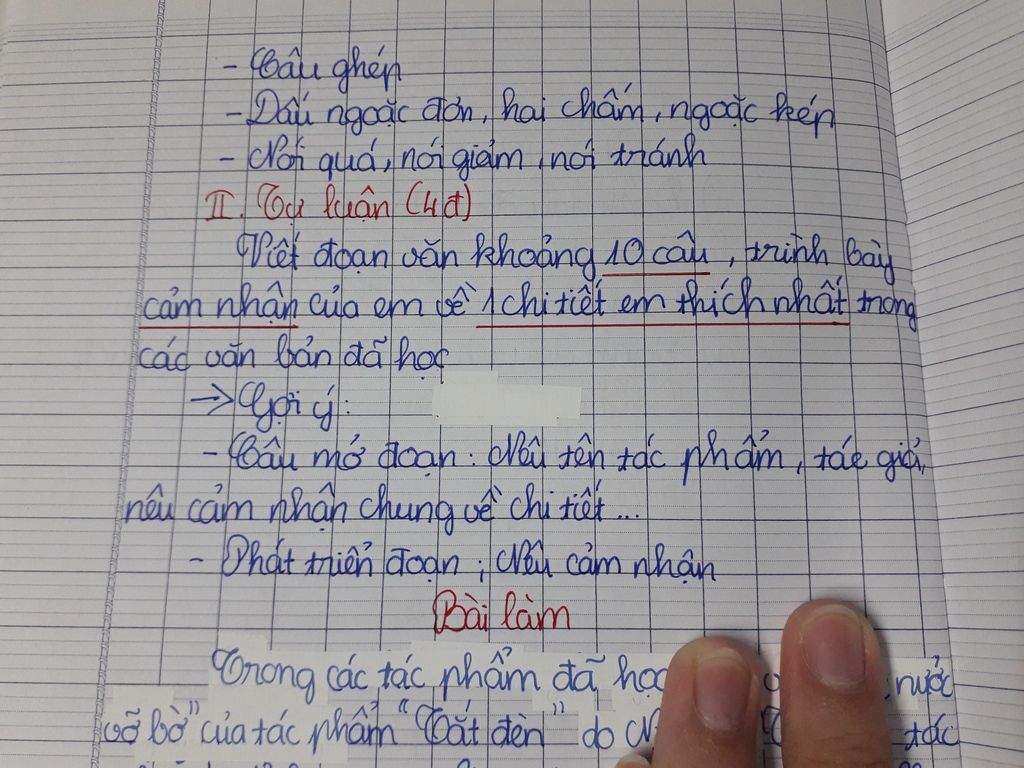 - Câu ghép
- Dấu ngoặc đơn, hai chấm, ngoặc kép
- Nói quá, nói giảm, nói tránh
II. Tự luận (4đ)
Viết đoạn văn khoảng 10 câu, trình bày
cảm nhận của em về 1 chi tiết em thích nhất trong
các văn bản đã học
→ Gợi ý:
- Câu mở đoạn: Nêu tên tác phẩm, tác giả,
nêu cảm nhận chung về chi tiết...
- Phát triển đoạn; Nêu cảm nhận
Bài làm
Trong các tác phẩm đã học nước
vỡ bờ" của tác phẩm "Tắt đèn" do tác